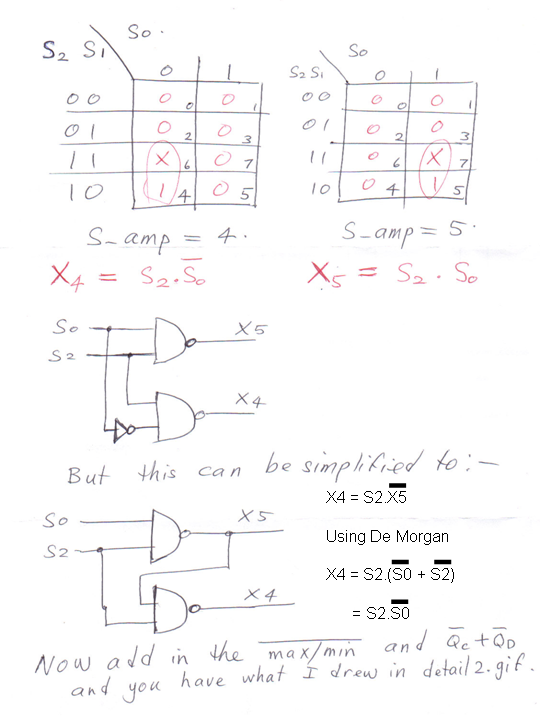 So.
S2 S1
0 1
00 0 0 0 1
01 0 2 0 3
11 X 6 0 7
10 1 4 0 5
S_amp = 4.
X4 = S2.S̅0
So
S2 S1
0 1
00 0 0 0 1
01 0 2 0 3
11 0 6 X 7
10 0 4 1 5
S_amp = 5
X5 = S2 . S0
So
S2
X5
X4
But this can be simplified to:-
So
S2
X5
X4
X4 = S2.X̅5̅
Using De Morgan
X4 = S2.(S̅0̅ + S̅2̅)
= S2.S̅0̅
Now add in the m̅a̅x̅/̅m̅i̅n̅ and Q̅c + Q̅D
and you have what I drew in detail2.gif.